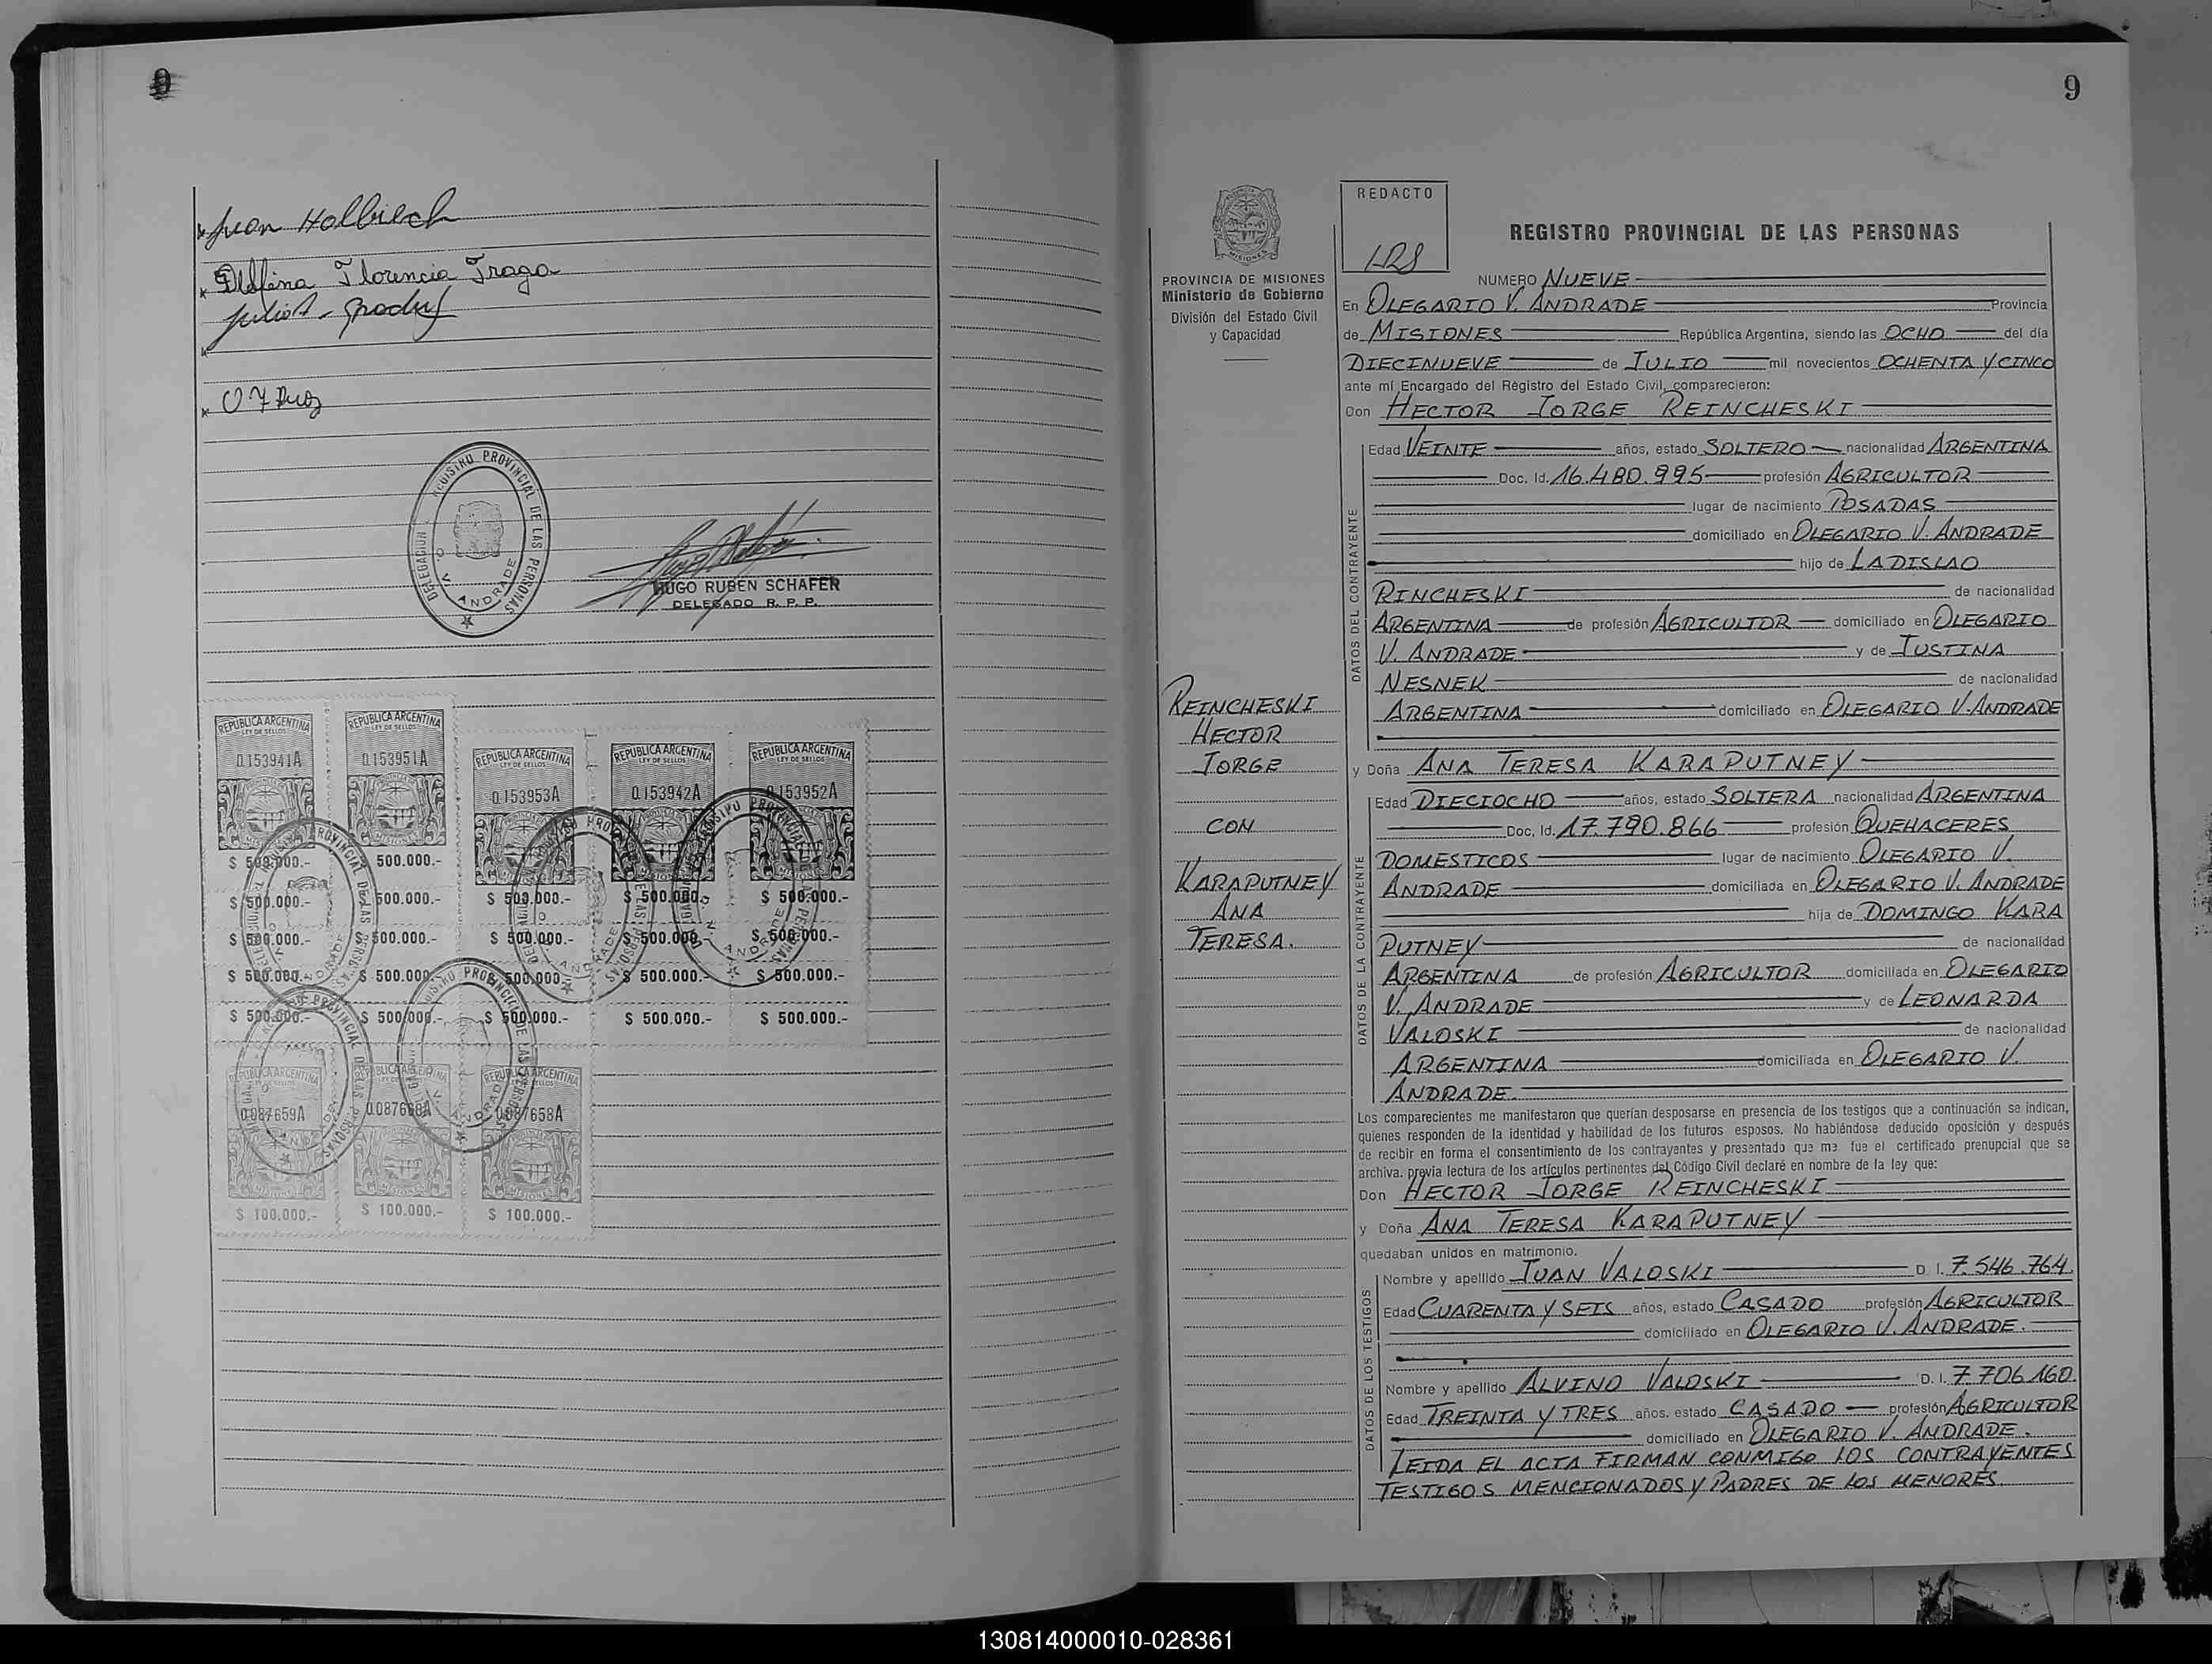 Juan Holbiech
Delfina Florencia Fraga
HUGO RUBEN SCHAFER
DELEGADO R. P. P.
REGISTRO PROVINCIAL DE LAS PERSONAS
DELEGACION
O V ANDRADE
REPUBLICA ARGENTINA REPUBLICA ARGENTINA REPUBLICA ARGENTINA REPUBLICA ARGENTINA REPUBLICA ARGENTINA
LEY DE SELLOS LEY DE SELLOS LEY DE SELLOS LEY DE SELLOS LEY DE SELLOS
0.153941A 0.153951A 0.153953A 0.153942A 0.153952A
$ 500.000.- 500.000.- $ 500.000.- $ 500.000.- $ 500.000.-
$ 500.000.- 500.000.- $ 500.000.- $ 500.000.- $ 500.000.-
$ 500.000.- 500.000.- 500.000.- $ 500.000.- $ 500.000.-
$ 500.000.- $ 500.000.- $ 500.000.- $ 500.000.- $ 500.000.-
$ 500.000.- $ 500.000.-
REPUBLICA ARGENTINA REPUBLICA ARGENTINA REPUBLICA ARGENTINA
0.087659A 0.087658A
$ 100.000.- $ 100.000.- $ 100.000.-
9
PROVINCIA DE MISIONES
Ministerio de Gobierno
División del Estado Civil
y Capacidad
REINCHESKI
HECTOR
JORGE
CON
KARAPUTNEY
ANA
TERESA.
REDACTO
REGISTRO PROVINCIAL DE LAS PERSONAS
NUMERO NUEVE
En OLEGARIO V. ANDRADE Provincia
de MISIONES República Argentina, siendo las OCHO del día
DIECINUEVE de JULIO mil novecientos OCHENTA Y CINCO
ante mí Encargado del Registro del Estado Civil, comparecieron:
Don HECTOR JORGE REINCHESKI
DATOS DEL CONTRAYENTE
Edad VEINTE años, estado SOLTERO nacionalidad ARGENTINA
Doc. Id. 16.480.995 profesión AGRICULTOR
lugar de nacimiento POSADAS
domiciliado en OLEGARIO V. ANDRADE
hijo de LADISLAO
RINCHESKI de nacionalidad
ARGENTINA de profesión AGRICULTOR domiciliado en OLEGARIO
V. ANDRADE y de JUSTINA
NESNEK de nacionalidad
ARGENTINA domiciliado en OLEGARIO V. ANDRADE
y Doña ANA TERESA KARAPUTNEY
DATOS DE LA CONTRAYENTE
Edad DIECIOCHO años, estado SOLTERA nacionalidad ARGENTINA
Doc. Id. 17.790.866 profesión QUEHACERES
DOMESTICOS lugar de nacimiento OLEGARIO V.
ANDRADE domiciliada en OLEGARIO V. ANDRADE
hija de DOMINGO KARA
PUTNEY de nacionalidad
ARGENTINA de profesión AGRICULTOR domiciliada en OLEGARIO
V. ANDRADE y de LEONARDA
VALOSKI de nacionalidad
ARGENTINA domiciliada en OLEGARIO V.
ANDRADE.
Los comparecientes me manifestaron que querían desposarse en presencia de los testigos que a continuación se indican,
quienes responden de la identidad y habilidad de los futuros esposos. No habiéndose deducido oposición y después
de recibir en forma el consentimiento de los contrayentes y presentado que me fue el certificado prenupcial que se
archiva. previa lectura de los artículos pertinentes del Código Civil declaré en nombre de la ley que:
Don HECTOR JORGE REINCHESKI
y Doña ANA TERESA KARAPUTNEY
quedaban unidos en matrimonio.
DATOS DE LOS TESTIGOS
Nombre y apellido JUAN VALOSKI D. I. 7.546.764.
Edad CUARENTA Y SEIS años, estado CASADO profesión AGRICULTOR
domiciliado en OLEGARIO V. ANDRADE.
Nombre y apellido ALVINO VALOSKI D. I. 7.706.160.
Edad TREINTA Y TRES años, estado CASADO profesión AGRICULTOR
domiciliado en OLEGARIO V. ANDRADE.
LEIDA EL ACTA FIRMAN CONMIGO LOS CONTRAYENTES
TESTIGOS MENCIONADOS Y PADRES DE LOS MENORES.
130814000010-028361